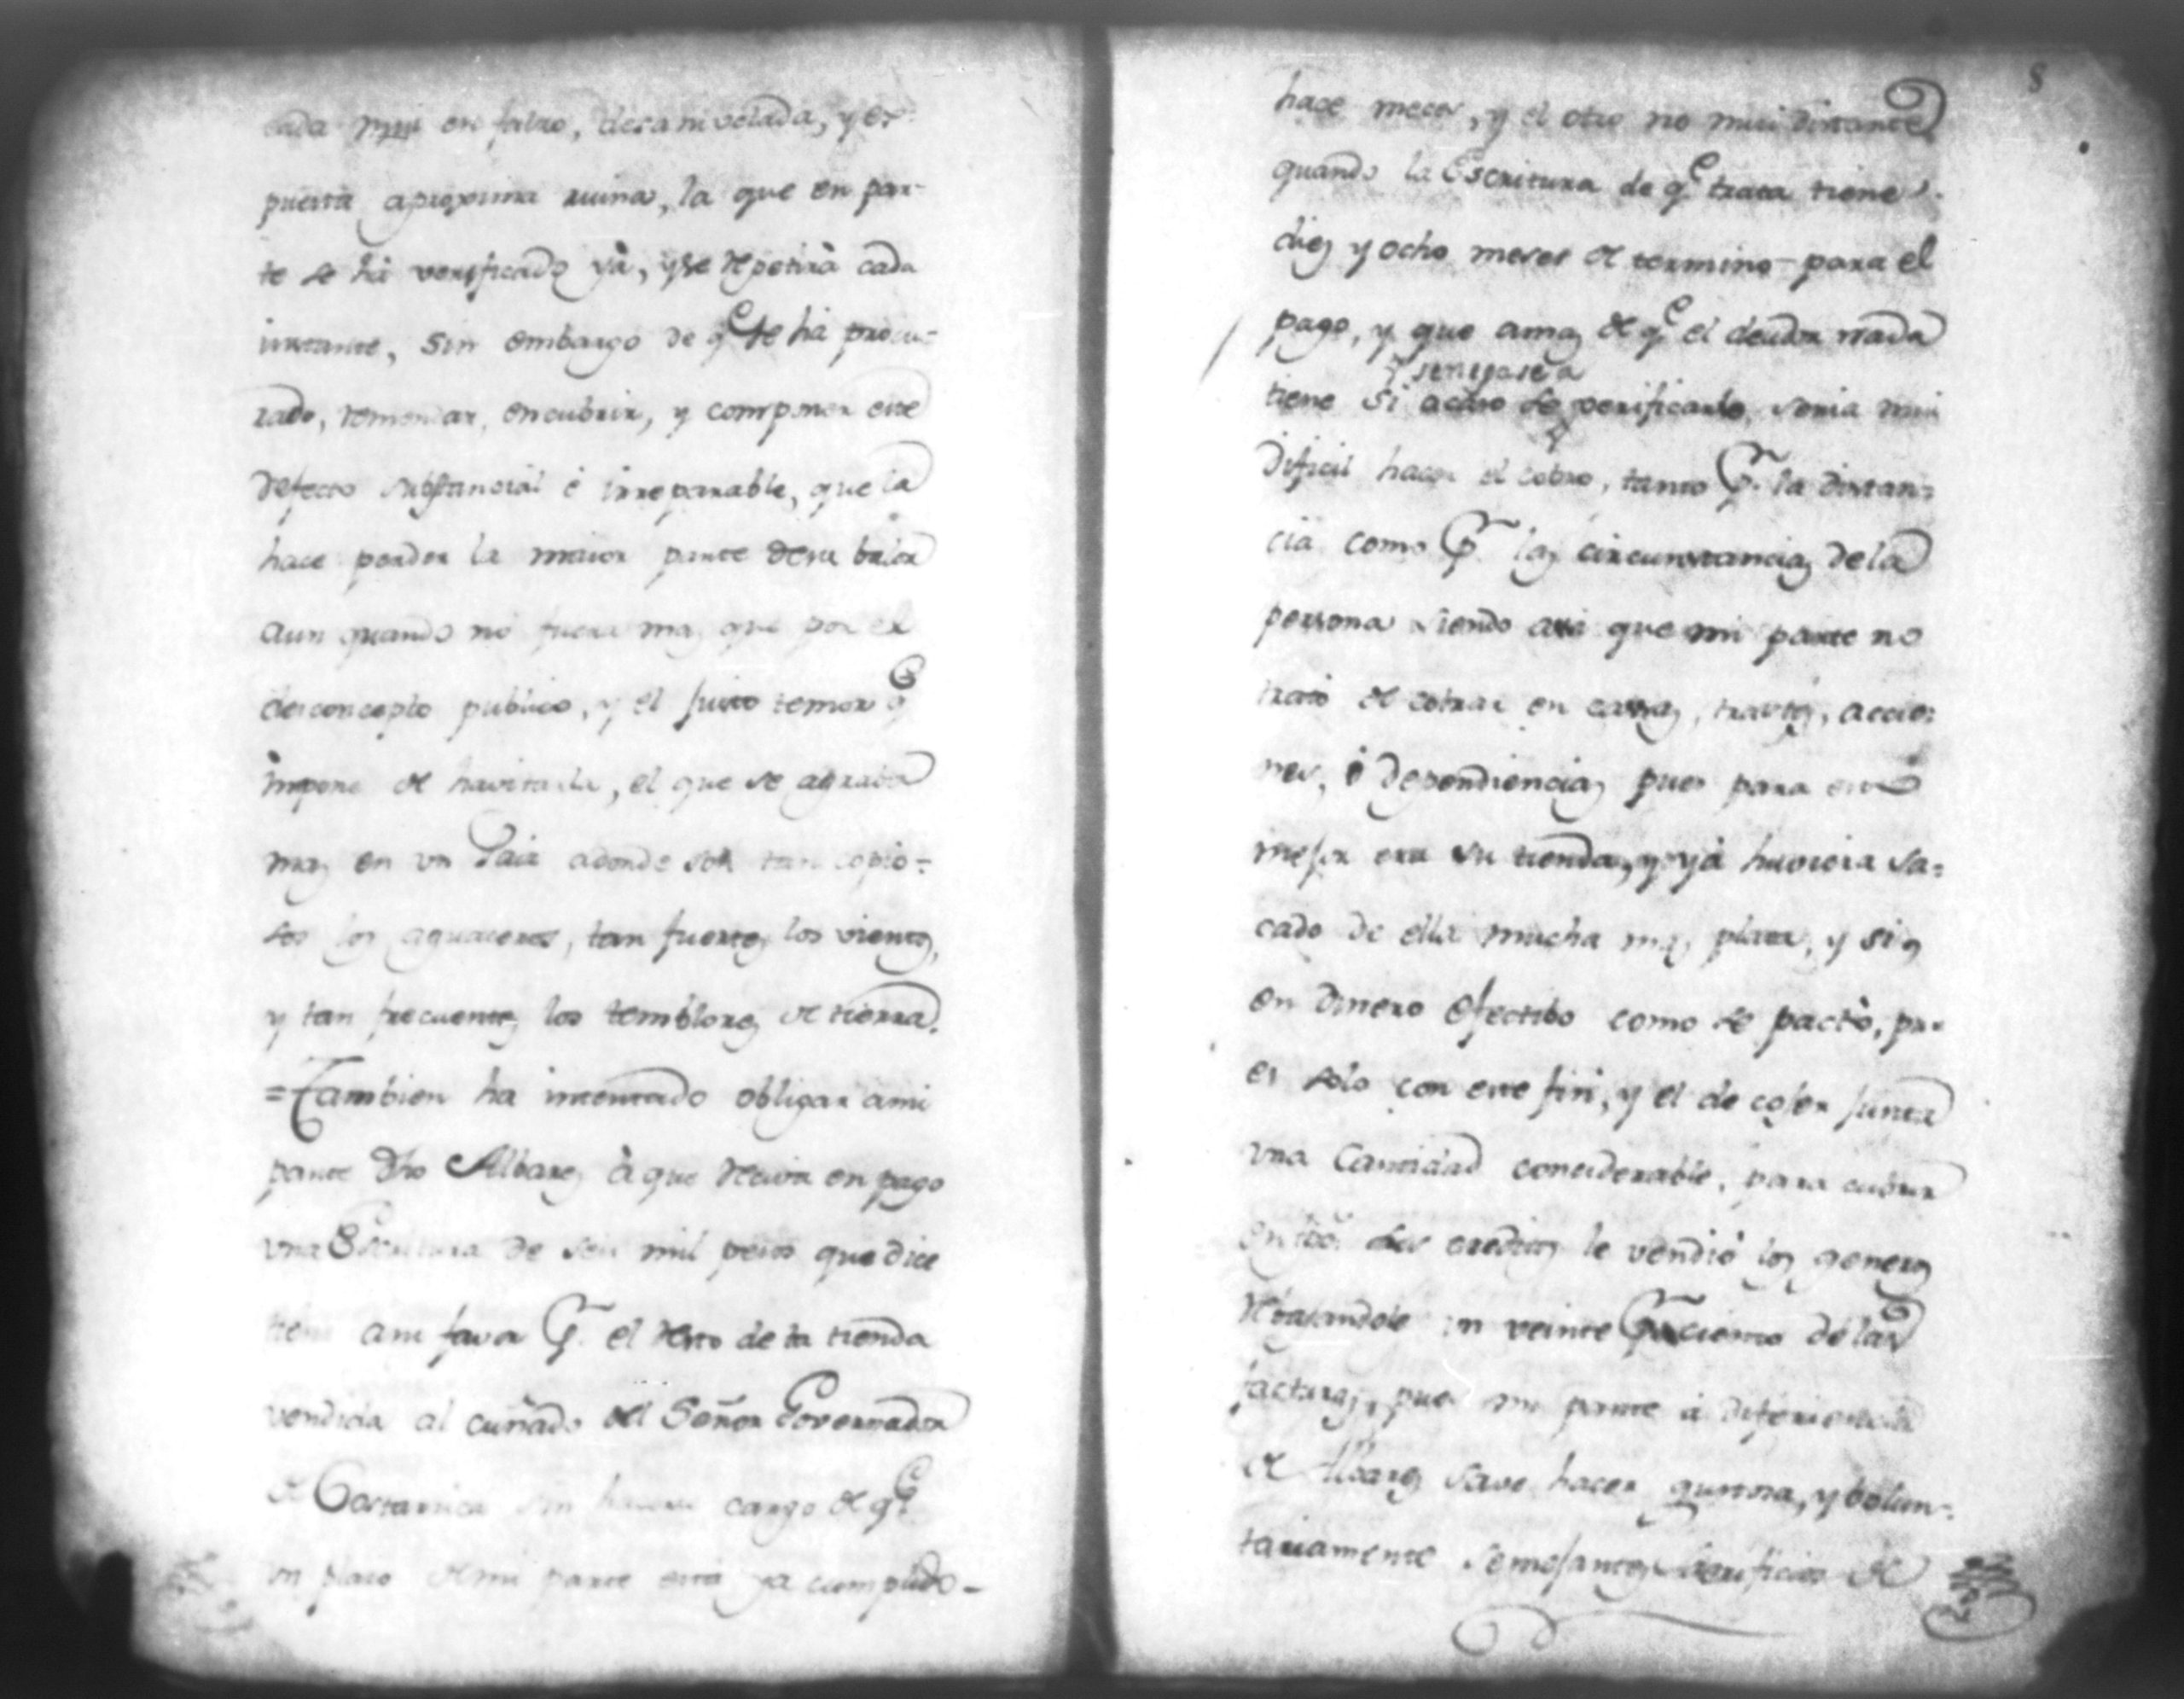 cada mui en falso, desanivelada, y ex-
puesta a proxima ruina, la que en par-
te se há verificado yá, y se repetirà cada
instante, sin embargo de q.e se há procu-
rado, remendar, encubrir, y componer este
defecto substancial é irreparable, que la
hace perder la maior parte desu balor
aun quando no fuera mas que por el
desconcepto publico, y el justo temor q.e
impone de havitarla, el que se agraba
mas en un Pais adonde son tan copio=
sos los aguaceros, tan fuertes los vientos,
y tan frecuentes los temblores de tierra.
=Tambien ha intentado obligar ami
parte dho Albares à que reciva en pago
vna Escritura de seis mil pesos que dice
tiene asu favor P.r el resto de la tienda
vendida al cuñado del Señor Governador
de Costarrica sin hacerse cargo de q.e
un plazo de mi parte está ya cumplido-
8
hace meses, y el otro no mui distante
quando la Escritura de q.e trata tiene
dies y ocho meses de termino para el
pago, y que amas de q.e el deudor nada
senegase a
tiene si acaso se verificarlo, seria mui
dificil hacer el cobro, tanto P.r la distan=
cia como P.r las circunstancias dela
persona siendo assi que mi parte no
trató de cobrar en casas, trastos, accio=
nes, ó dependiencias pues para eso
mejor era su tienda, y yá huviera sa=
cado de ella mucha mas plata, y si
en dinero efectibo como se pactò, pu=
es solo con este fin, y el de cojer junta
vna Cantidad considerable, para cubrir
sus creditos le vendió los generos
rebajandole un veinte P.r ciento de las
facturas, pues mi parte á diferiencia
de Albares save hacer gustosa, y bolun=
tariamente semejantes beneficios de